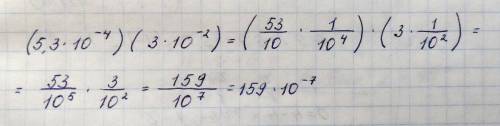 (5,3·10⁻⁴)(3·10⁻²) = (53/10 · 1/10⁴) · (3 · 1/10²) =
= 53/10⁵ · 3/10² = 159/10⁷ = 159·10⁻⁷